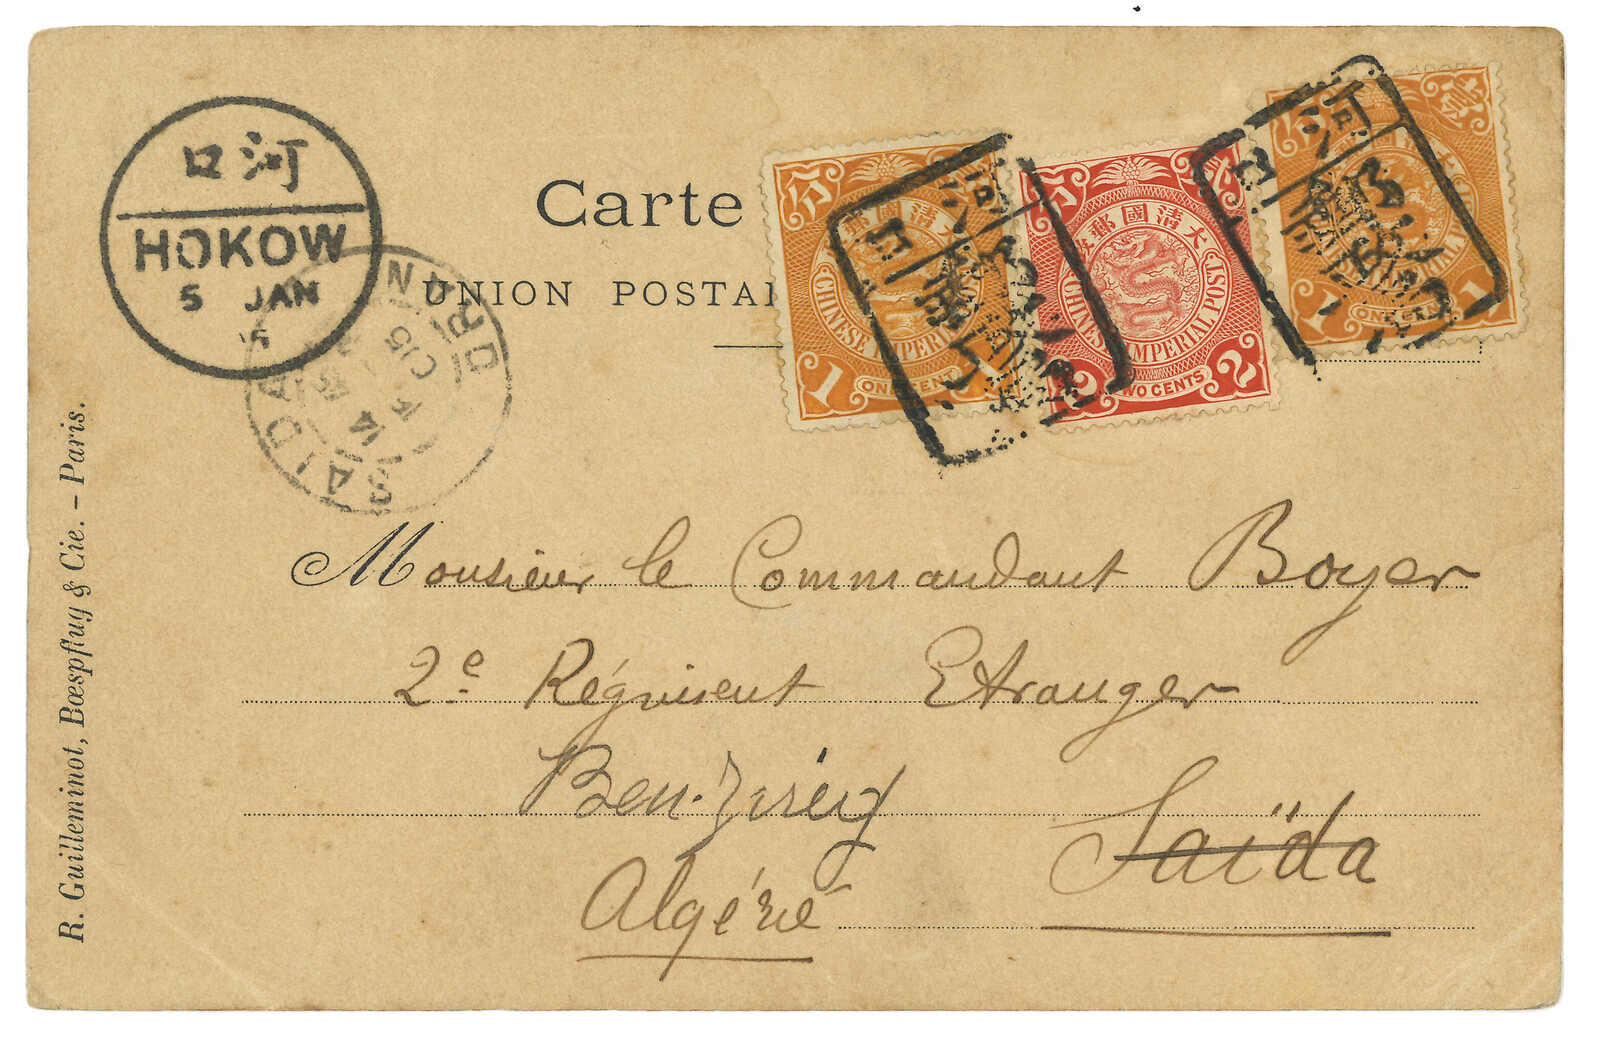 口河
HOKOW
5 JAN
Carte
UNION POSTA
SAIDA
ORAN
14
05
大清國郵政
CHINESE IMPERIAL POST
1 ONE CENT 1
大清國郵政
CHINESE IMPERIAL POST.
2 TWO CENTS 2
1 ONE CENT 1
Monsieur le Commandant Boyer
2e Régiment Etranger
Ben-Zireg
Saïda
Algérie
R. Guilleminot, Bœspflug & Cie. – Paris.